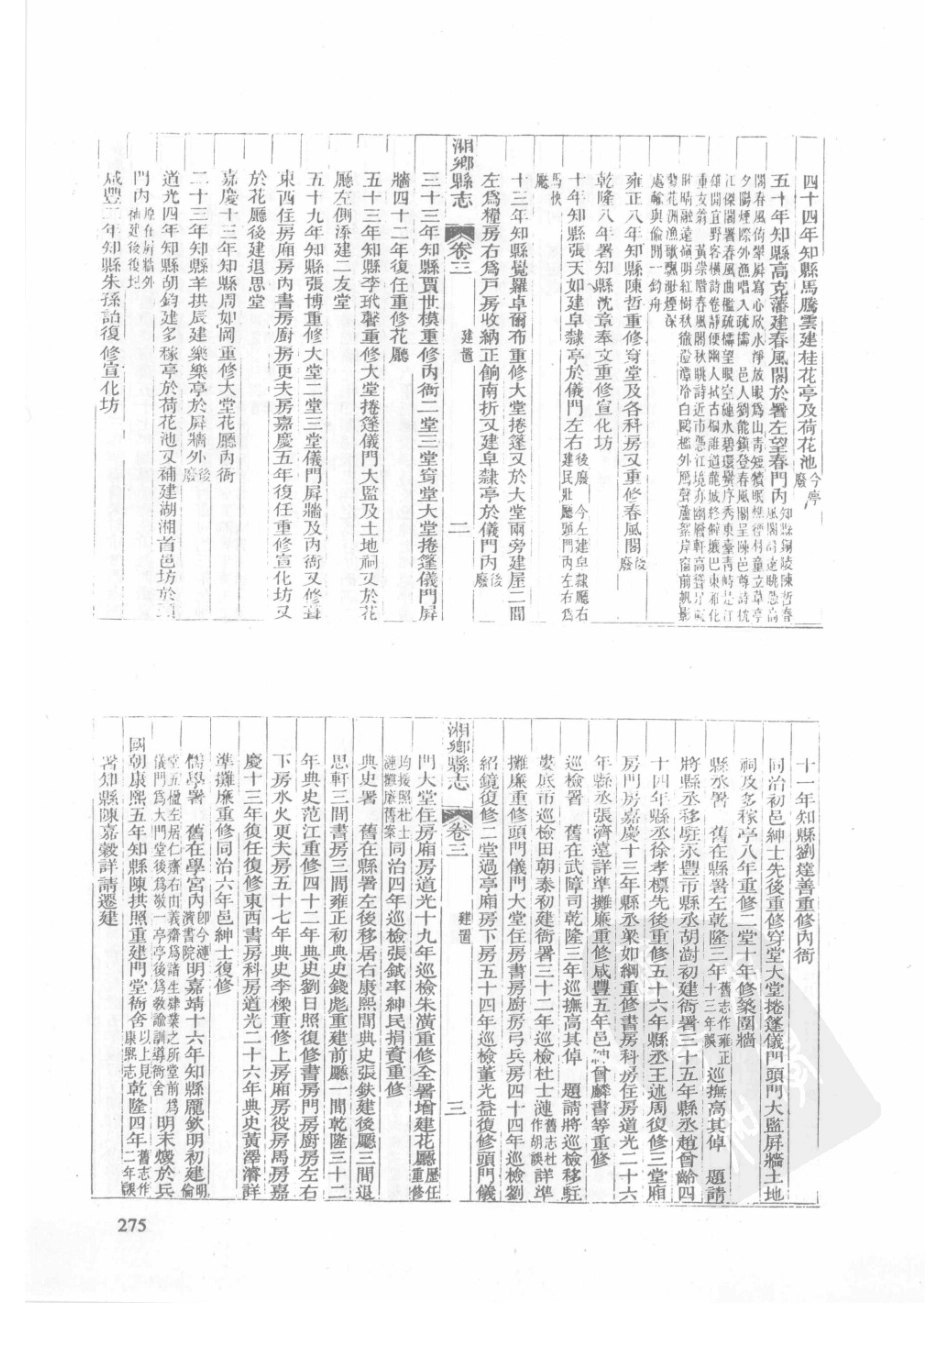 四十四年知縣馬騰雲建桂花亭及荷花池今亭廢
五十年知縣高克藩建春風閣於署左望春門內
雍正八年知縣陳哲重修穿堂及各科房又重修春風閣後廢
乾隆八年署知縣沈章奉文重修宣化坊
十年知縣張天如建皁隸亭於儀門左右後廢今左建皁隸廳右建民壯廳頭門內左右為馬快廳
十三年知縣覺羅卓爾布重修大堂捲篷又於大堂兩旁建屋二間
左為糧房右為戸房收納正餉南折又建皁隸亭於儀門內後廢
湘鄉縣志 卷三 建置 二
三十三年知縣賈世模重修內衙二堂三堂穿堂大堂捲篷儀門屏
牆四十二年復任重修花廳
五十三年知縣李玳馨重修大堂捲篷儀門大監及土地祠又於花
廳左側添建二友堂
五十九年知縣張博重修大堂二堂三堂儀門屏牆及內衙又修
東西住房廂房內書房廚房更夫房嘉慶五年復任重修宣化坊又
於花廳後建退思堂
嘉慶十三年知縣周如岡重修大堂花廳內衙
二十三年知縣羊拱辰建樂樂亭於屏牆外後廢
道光四年知縣胡鈞建多稼亭於荷花池又補建湖湘首邑坊於
門內原在屏牆外補建後復圮
咸豐二年知縣朱孫詒復修宣化坊
十一年知縣劉達善重修內衙
同治初邑紳士先後重修穿堂大堂捲篷儀門頭門大監屏牆土地
祠及多稼亭八年重修二堂十年修築圍牆
縣丞署 舊在縣署左乾隆三年舊志作雍正十三年誤巡撫高其倬 題請
將縣丞移駐永豐市縣丞胡澍初建衙署三十五年縣丞趙曾齡四
十四年縣丞徐孝標先後重修五十六年縣丞王述周復修三堂廂
房門房嘉慶十三年縣丞梁如綱重修書房科房住房道光二十六
年縣丞張濟遠詳準攤廉重修咸豐五年邑紳曾麟書等重修
巡檢署 舊在武障司乾隆三年巡撫高其倬 題請將巡檢移駐
婁底市巡檢田朝泰初建衙署三十二年巡檢杜士漣舊志杜作胡誤詳準
攤廉重修頭門儀門大堂住房書房廚房弓兵房四十四年巡檢劉
紹鏡復修二堂過亭廂房下房五十四年巡檢董光益復修頭門儀
湘鄉縣志 卷三 建置 三
門大堂住房廂房道光十九年巡檢朱潢重修全署增建花廳歷任重修均援照杜士漣攤廉舊案同治四年巡檢張鉽率紳民捐資重修
典史署 舊在縣署左後移居右康熙間典史張鈇建後廳三間退
思軒三間書房三間雍正初典史錢彪重建前廳一間乾隆三十二
年典史范江重修四十二年典史劉日照復修書房門房廚房左右
下房水火更夫房五十七年典史李樑重修上房廂房役房馬房嘉
慶十三年復任復修東西書房科房道光二十六年典史黃澤濬詳
準攤廉重修同治六年邑紳士復修
儒學署 舊在學宮內即今漣濱書院明嘉靖十六年知縣龍欽明初建明倫
堂五楹左居仁齋右由義齋為諸生肄業之所堂前為儀門為大門堂後為敬一亭亭後為教諭訓導衙舍明末燬於兵
國朝康熙五年知縣陳拱照重建門堂衙舍以上見康熙志乾隆四年舊志作二年誤
署知縣陳嘉穀詳請遷建
275